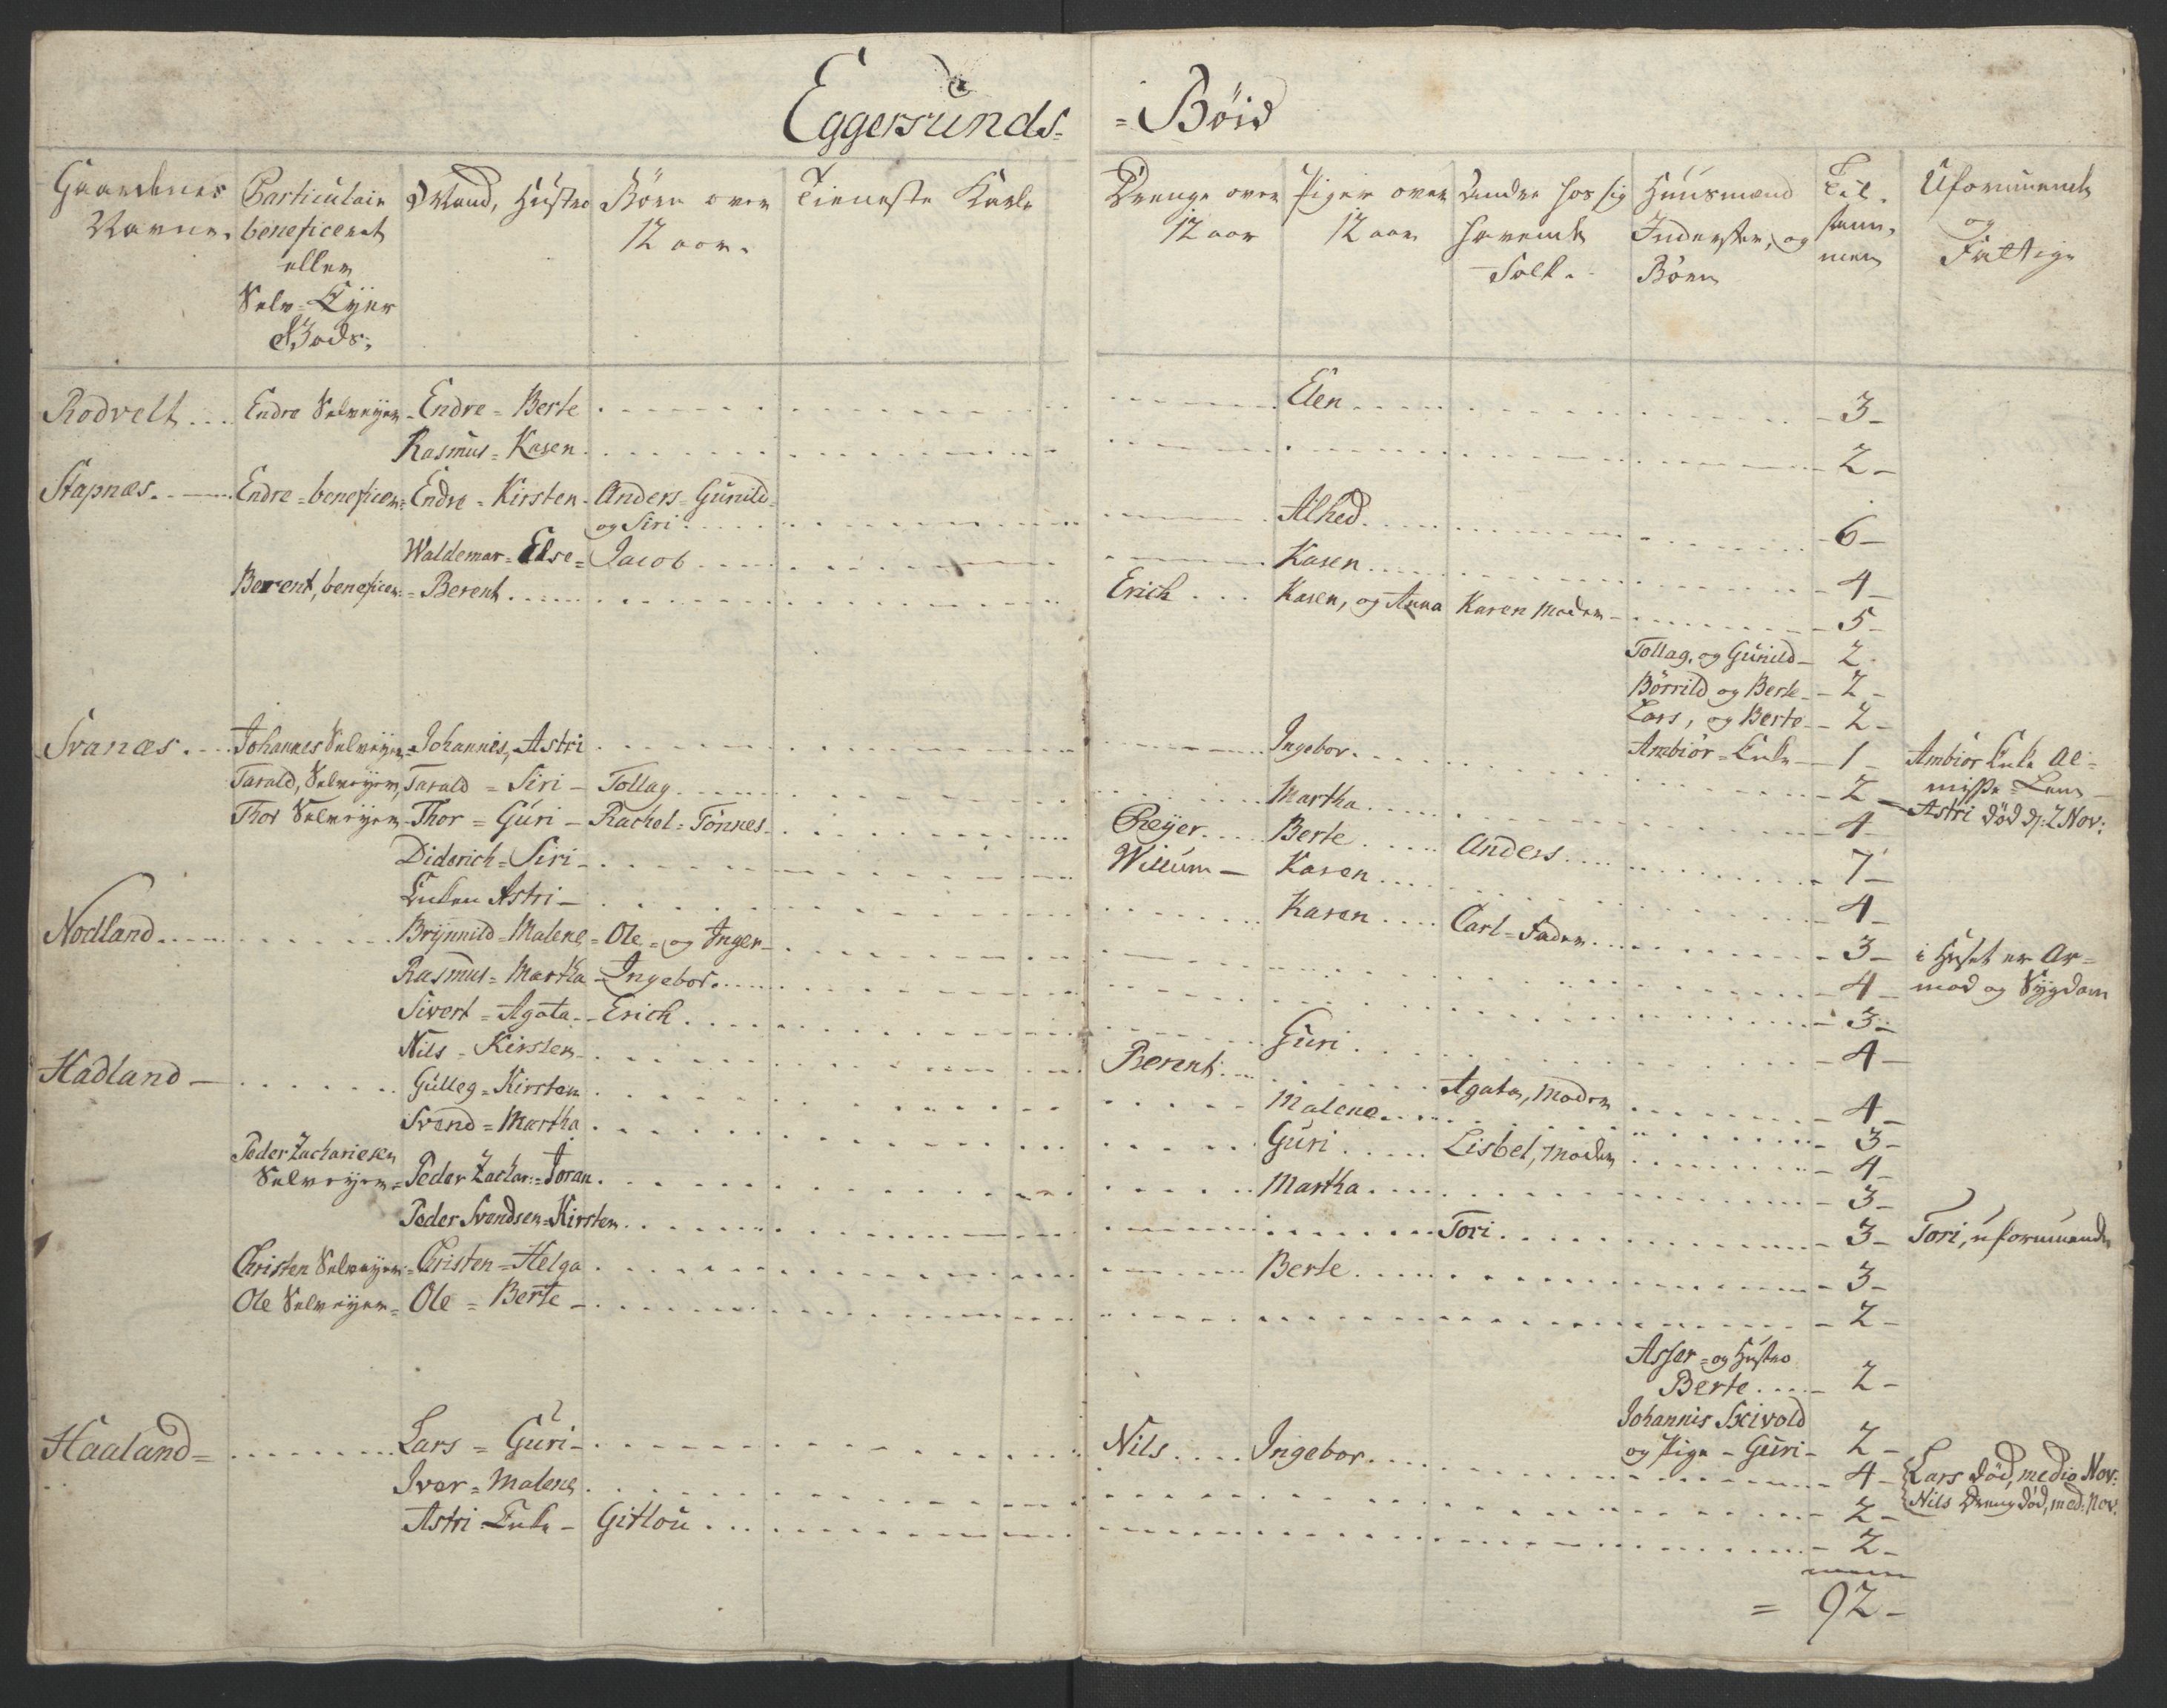 Eggersunds= =Böid
Gaardenes Navne.
Particulair beneficeret eller Selv=Eyer Gods.
Mand, Hustro
Börn over 12 aar.
Tieneste Karle
Drenge over 12 aar
Piger over 12 aar
Andre hos sig havende Folk.
Huusmænd Inderster, og Börn
Til sammen
Uformuende og Fattige
Rodvelt .... Endre Selveyer - Endre = Berte ..... Elen ..... - 3 -
Rasmus = Karen ..... - 2 -
Stapnæs. .... Endre = beneficer: Endre = Kirsten - Anders = Gunild=
og Siri ..... Alhed ..... - 6 -
Waldemar = Else = Jacob ..... Karen ..... - 4 -
Berent, beneficer: = Berent ..... Erich ... Karen, og Anna Karen Moder - ..... - 5 -
Tollag, og Gunild - 2 -
Börrild og Berte - - 2 -
Lars, og Berte - - 2 -
Ambiör = Enke - 1 - Ambiör Enke Al=
misse = Lem
Svanæs. ... Johannes Selveyer Johannis, Astri ..... Ingebor. ..... - 2 - Astri död d: 2 Nov:
Tarald, Selveyer, Tarald = Siri - Tollag ..... Martha ..... - 4 -
Thor Selveyer - Thor = Guri - Rachel = Tönnes - ..... Reyer .... Berte ..... Anders .... - 7 -
Diderich = Siri - ..... Willum - Karen ..... - 4 -
Enken Astri - ..... Karen .... Carl = Fader ..... - 3 - i Huset er Ar=
mod og Sygdom
Nodland ..... Brynnild = Malene = Ole = og Inger - ..... - 4 -
Rasmus = Martha - Ingebor. ..... - 3 -
Sivert = Agata - - Erich ..... Guri ..... - 4 -
Nils - Kirsten - ..... Berent ..... Agata, Moder ..... - 4 -
Hadland - ..... Gulleg = Kirsten ..... Malene ..... - 3 -
Svend = Martha ..... Guri ..... Lisbet, Moder ..... - 4 -
Peder Zachariesen
Selveyer = Peder Zachar: = Joran ..... Martha ..... - 3 -
Peder Svendsen = Kirsten ..... Tori ..... - 3 - Tori, uformuende
Christen Selveyer = Christen = Helga ..... Berte ..... - 3 -
Ole Selveyer = Ole = Berte - ..... - 2 -
Asser = og Hustro
Berte .... - 2 -
Johannis Sxivold
og Pige - Guri - 2 -
Haaland = ..... Lars = Guri - ..... Nils .... Ingebor ..... - 4 - Lars död, medio Nov:
Nils Dreng död, med: Nov:
Iver = Malene ..... - 2 -
Astri Enke - Gitlou ..... - 2 -
= 92 -